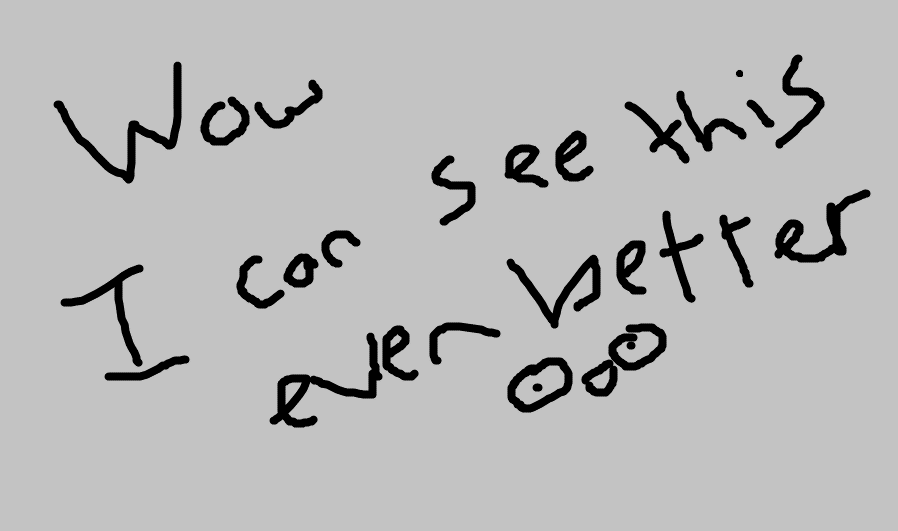 Wow
I can see this
even better
O.O